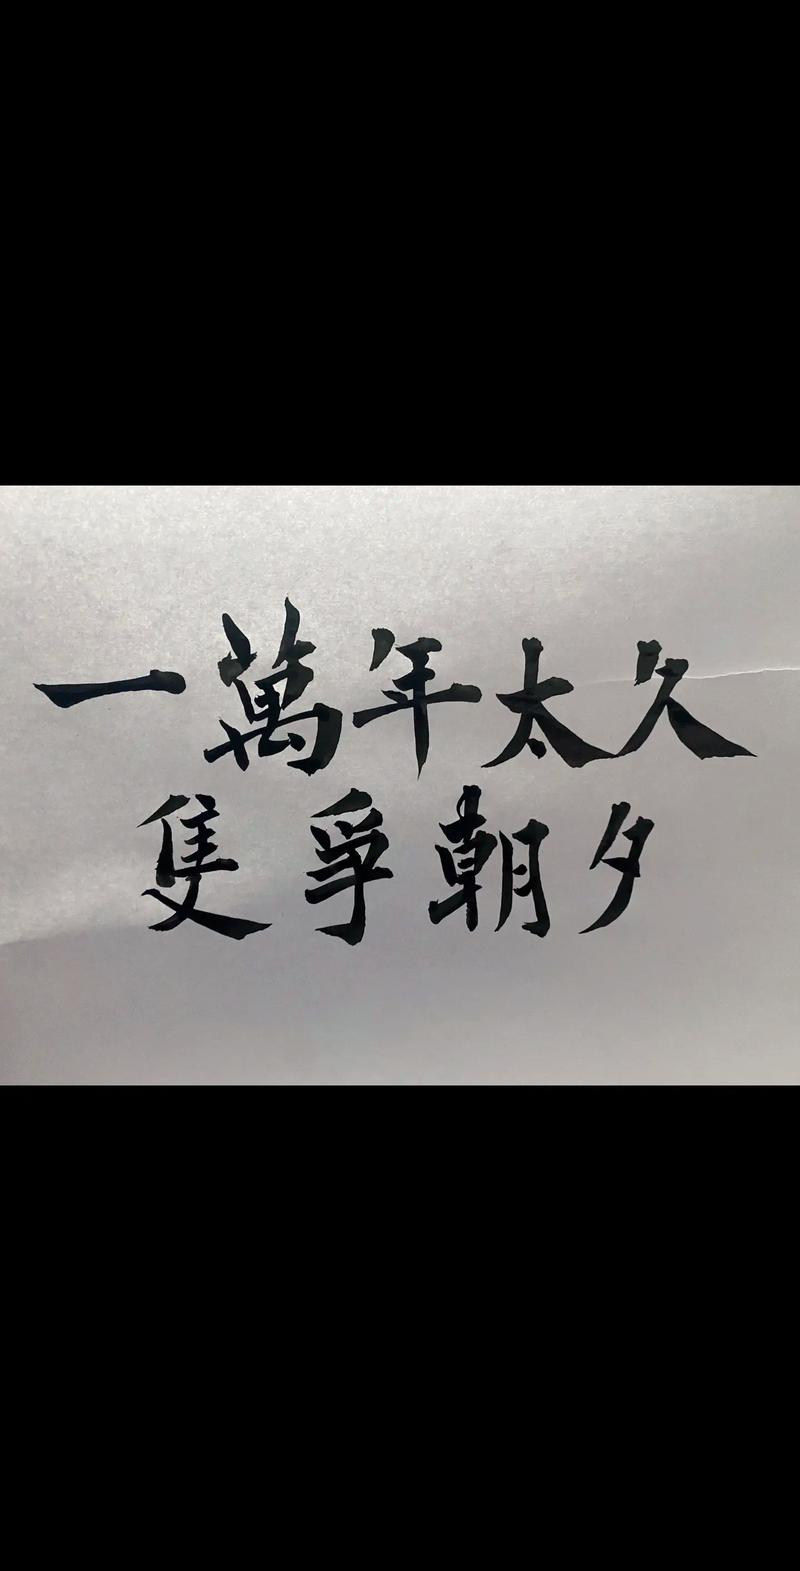 一萬年太久
隻爭朝夕